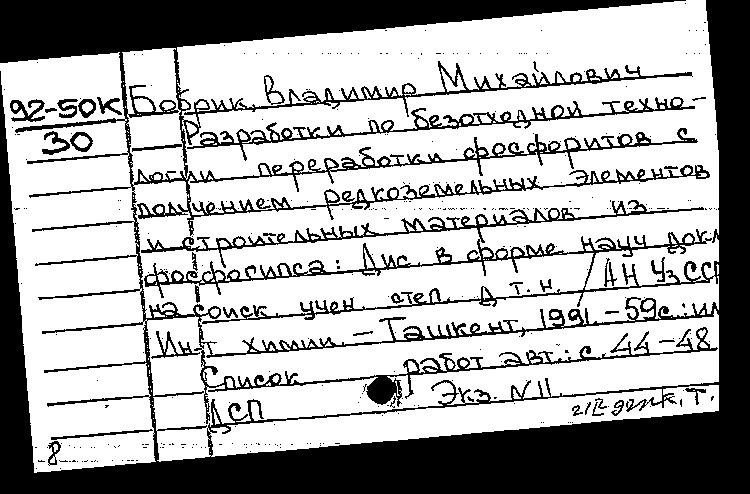 92-50К
30
Бобрик, Владимир Михайлович
Разработки по безотходной техно-
логии переработки фосфоритов с
получением редкоземельных элементов
и строительных материалов из
фосфогипса: Дис. в форме науч докл
на соиск. учен. степ. д. т. н. / АН УзССР
Ин-т химии. – Ташкент, 1991. – 59с.: ил
Список работ авт.: с. 44-48
ДСП Экз. N11.
8